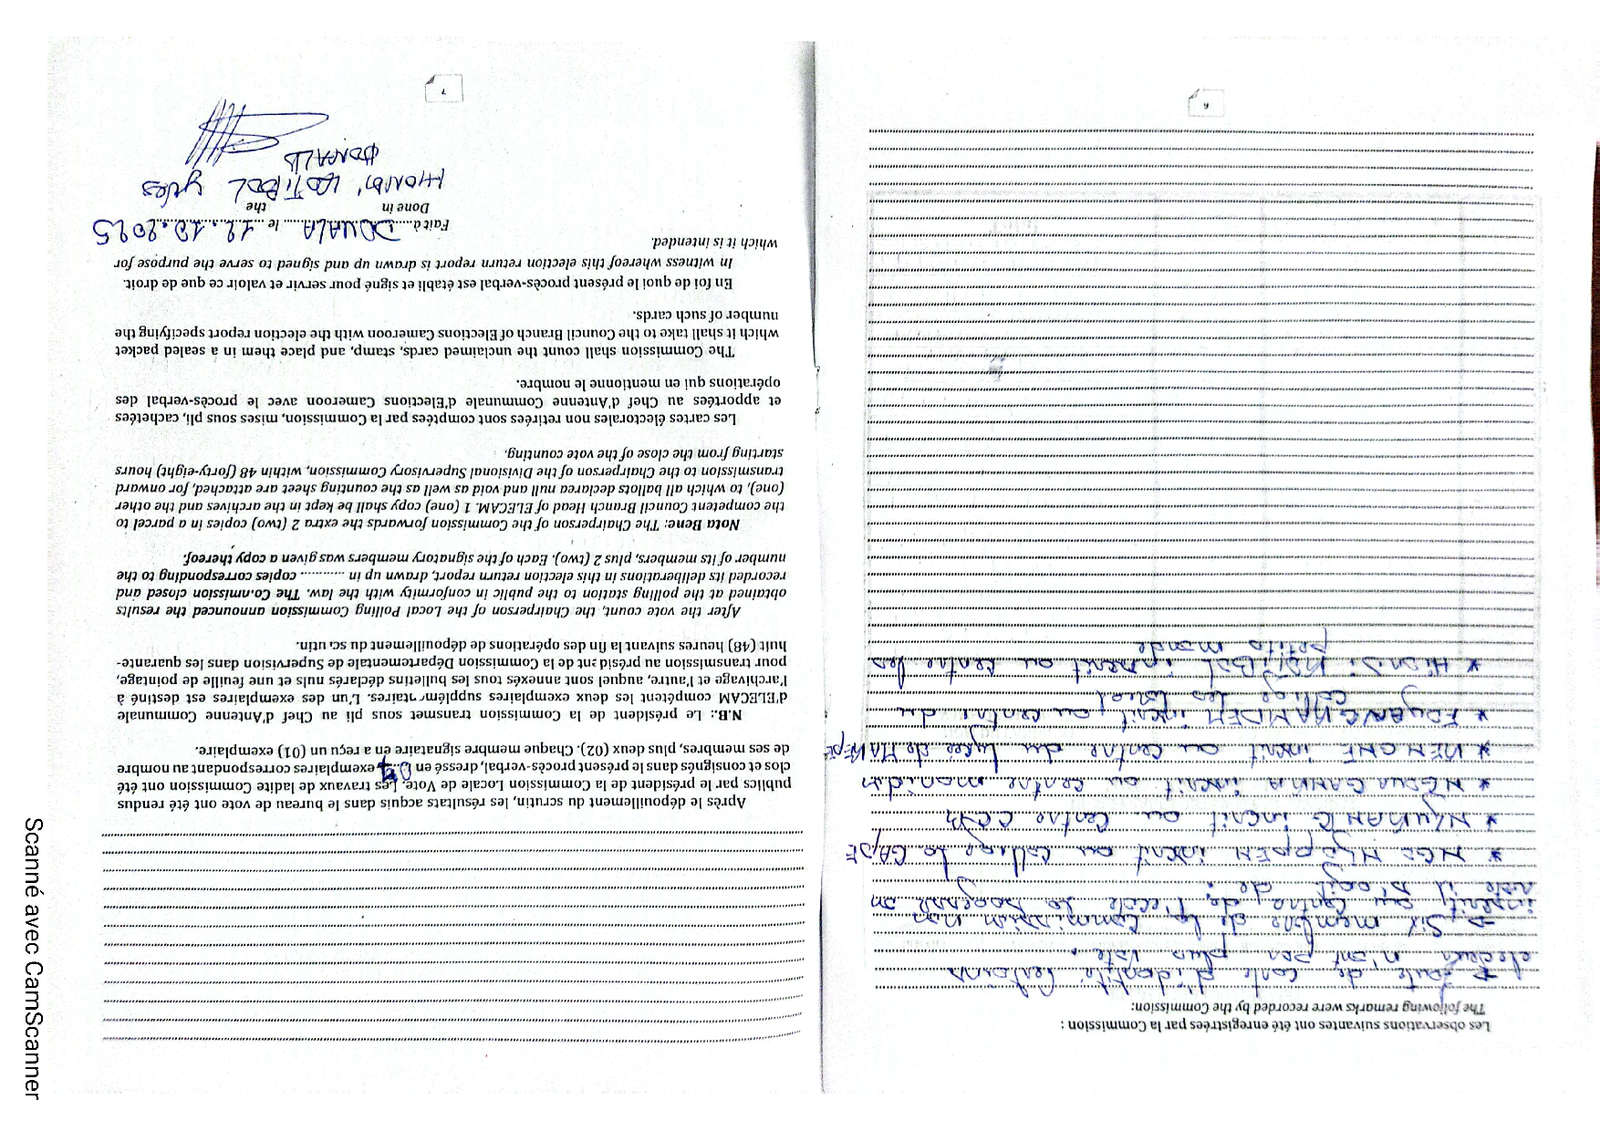 Les observations suivantes ont été enregistrées par la Commission :
The following remarks were recorded by the Commission:
faute de carte d'identité certains
electeurs n'ont pas plus voté.
Six membre de la commission non
inscrit au centre de l'ecole la
note il s'agit de :
* inscrit au college la
* inscrit au centre
* inscrit au centre
* inscrit au centre du lycée de
* inscrit au centre du
college les
* inscrit au centre les
petits monde
6
Après le dépouillement du scrutin, les résultats acquis dans le bureau de vote ont été rendus
publics par le président de la Commission Locale de Vote. Les travaux de ladite Commission ont été
clos et consignés dans le présent procès-verbal, dressé en exemplaires correspondant au nombre
de ses membres, plus deux (02). Chaque membre signataire en a reçu un (01) exemplaire.
N.B.: Le président de la Commission transmet sous pli au Chef d'Antenne Communale
d'ELECAM compétent les deux exemplaires supplémentaires. L'un des exemplaires est destiné à
l'archivage et l'autre, auquel sont annexés tous les bulletins déclarés nuls et une feuille de pointage,
pour transmission au président de la Commission Départementale de Supervision dans les quarante-
huit (48) heures suivant la fin des opérations de dépouillement du scrutin.
After the vote count, the Chairperson of the Local Polling Commission announced the results
obtained at the polling station to the public in conformity with the law. The Commission closed and
recorded its deliberations in this election return report, drawn up in .......... copies corresponding to the
number of its members, plus 2 (two). Each of the signatory members was given a copy thereof.
Nota Bene: The Chairperson of the Commission forwards the extra 2 (two) copies in a parcel to
the competent Council Branch Head of ELECAM. 1 (one) copy shall be kept in the archives and the other
(one), to which all ballots declared null and void as well as the counting sheet are attached, for onward
transmission to the Chairperson of the Divisional Supervisory Commission, within 48 (forty-eight) hours
starting from the close of the vote counting.
Les cartes électorales non retirées sont comptées par la Commission, mises sous pli, cachetées
et apportées au Chef d'Antenne Communale d'Elections Cameroon avec le procès-verbal des
opérations qui en mentionne le nombre.
The Commission shall count the unclaimed cards, stamp, and place them in a sealed packet
which it shall take to the Council Branch of Elections Cameroon with the election report specifying the
number of such cards.
En foi de quoi le présent procès-verbal est établi et signé pour servir et valoir ce que de droit.
In witness whereof this election return report is drawn up and signed to serve the purpose for
which it is intended.
Fait à DOUALA le 12.10.2025
Done in the
DONALD
7
Scanné avec CamScanner